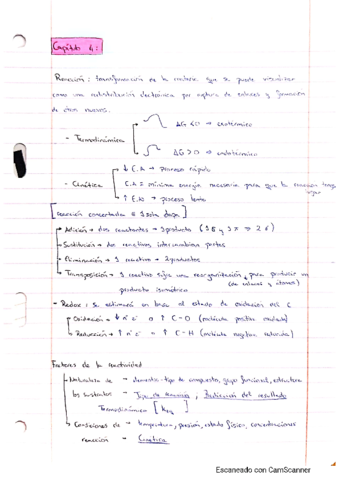 Capítulo 4:
Reacción: transformación de la materia que se puede visualizar
como una redistribución electrónica por ruptura de enlaces y formación
de otros nuevos.
ΔG < 0 → exotérmico
- Termodinámica
ΔG > 0 → endotérmico
↓ E.A → proceso rápido
- Cinética E.A = mínima energía necesaria para que la reacción tenga
lugar
↑ E.A → proceso lento
[Reacción concertada = 1 sola etapa]
Adición → dos reactantes → 1 producto
Sustitución → dos reactivos intercambian partes
Eliminación → 1 reactivo → 2 productos
Transposición → 1 reactivo sufre una reorganización para producir un
(de enlaces y átomos)
producto isomérico
- Redox: Se estimará en base al estado de oxidación del C
Oxidación = ↓ n° e⁻ o ↑ C-O (molécula
Reducción = ↑ n° e⁻ o ↑ C-H (molécula
Factores de la reactividad
Naturaleza de → elementos, tipo de compuesto, grupo funcional, estructura
los sustratos → Tipo de reacción, Predicción del resultado
Termodinámica [Keq]
Condiciones de → temperatura, presión, estado físico, concentraciones
reacción → Cinética
Escaneado con CamScanner